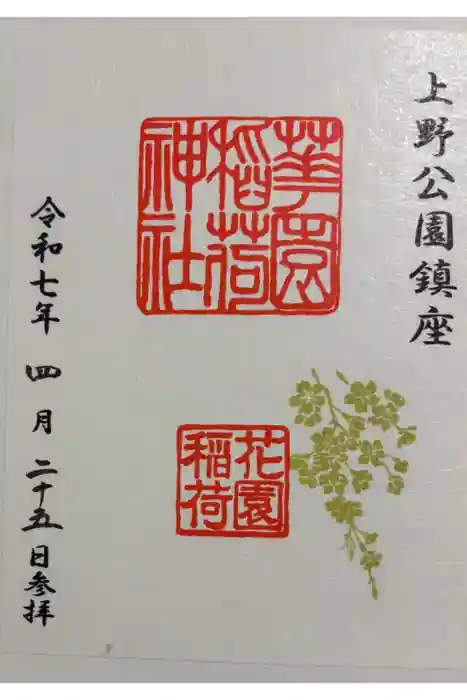 上野公園鎮座
華園
稲荷
神社
花園
稲荷
令和七年四月二十五日参拝